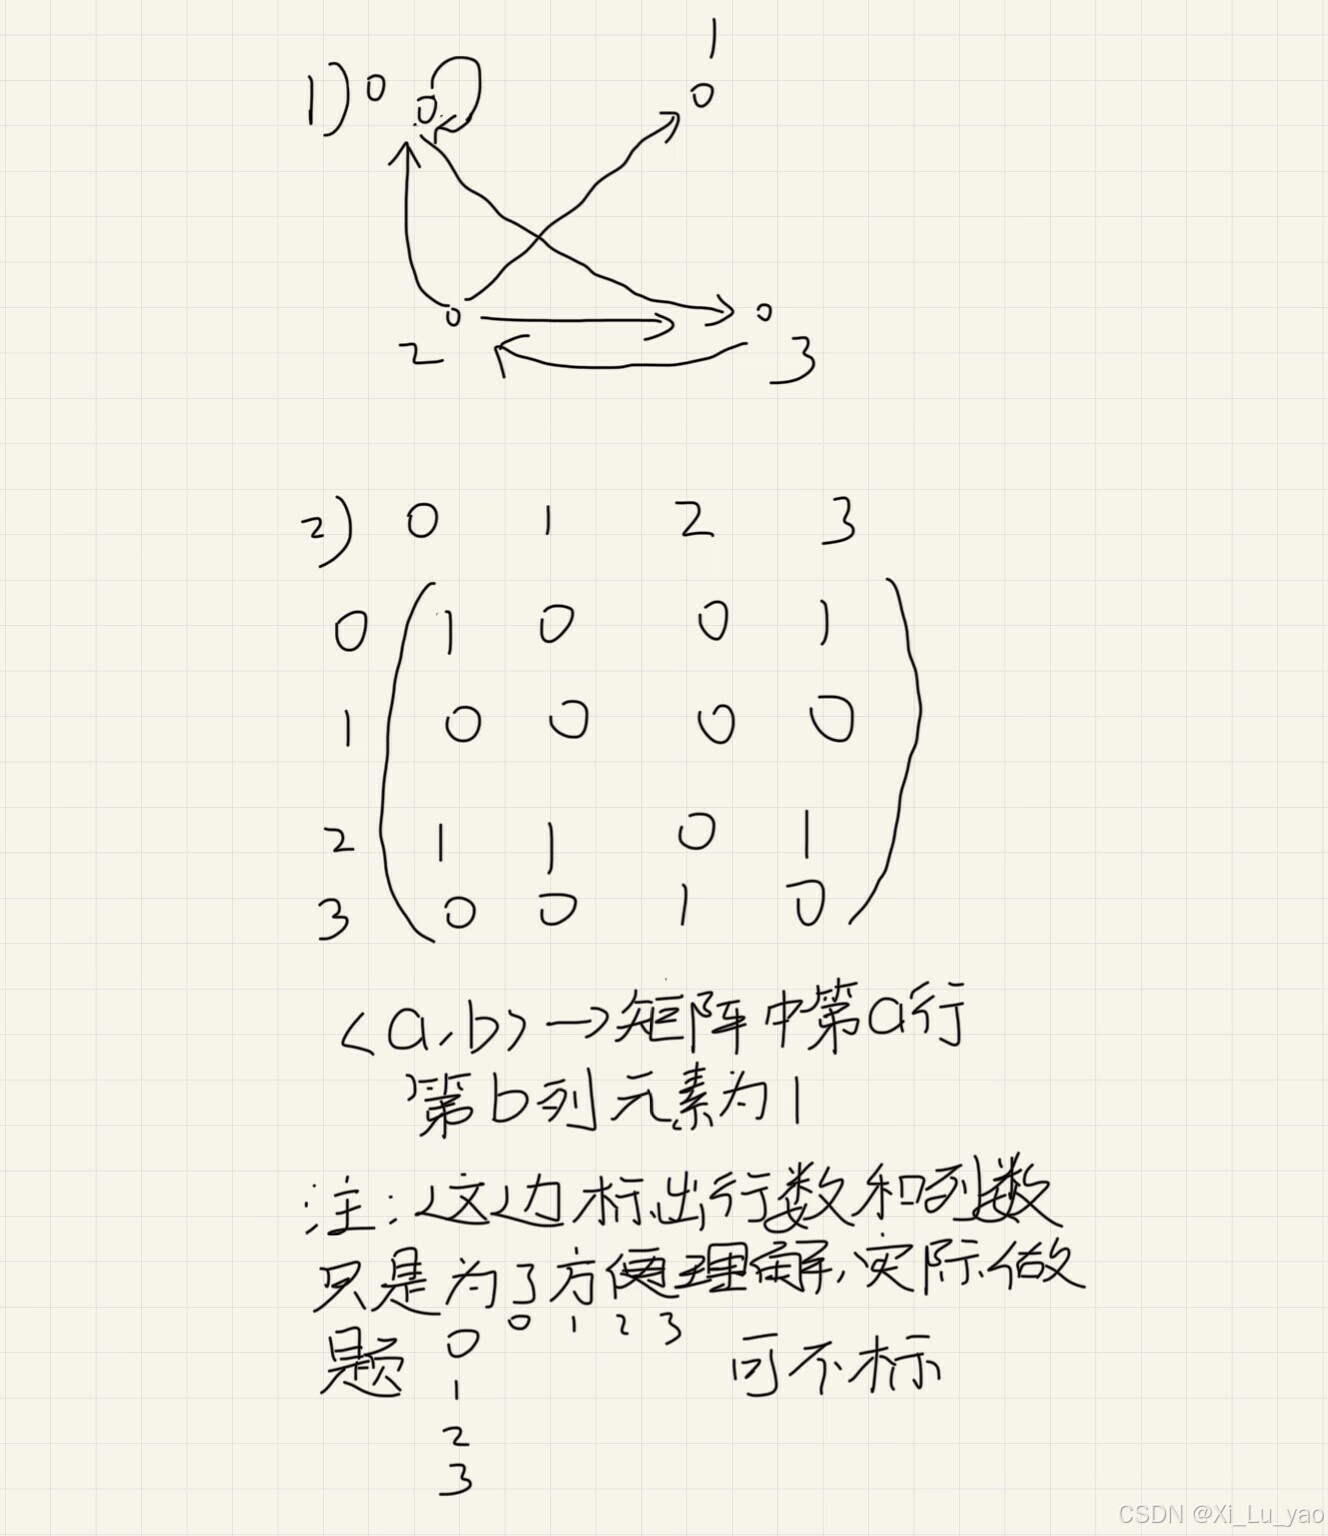 1
1) 0
2
3
2) 0 1 2 3
0 1 0 0 1
1 0 0 0 0
2 1 1 0 1
3 0 0 1 0
<a,b> → 矩阵中第a行
第b列元素为1
注:这边标出行数和列数
只是为了方便理解,实际做
题 0 1 2 3 可不标
0
1
2
3
CSDN @Xi_Lu_yao